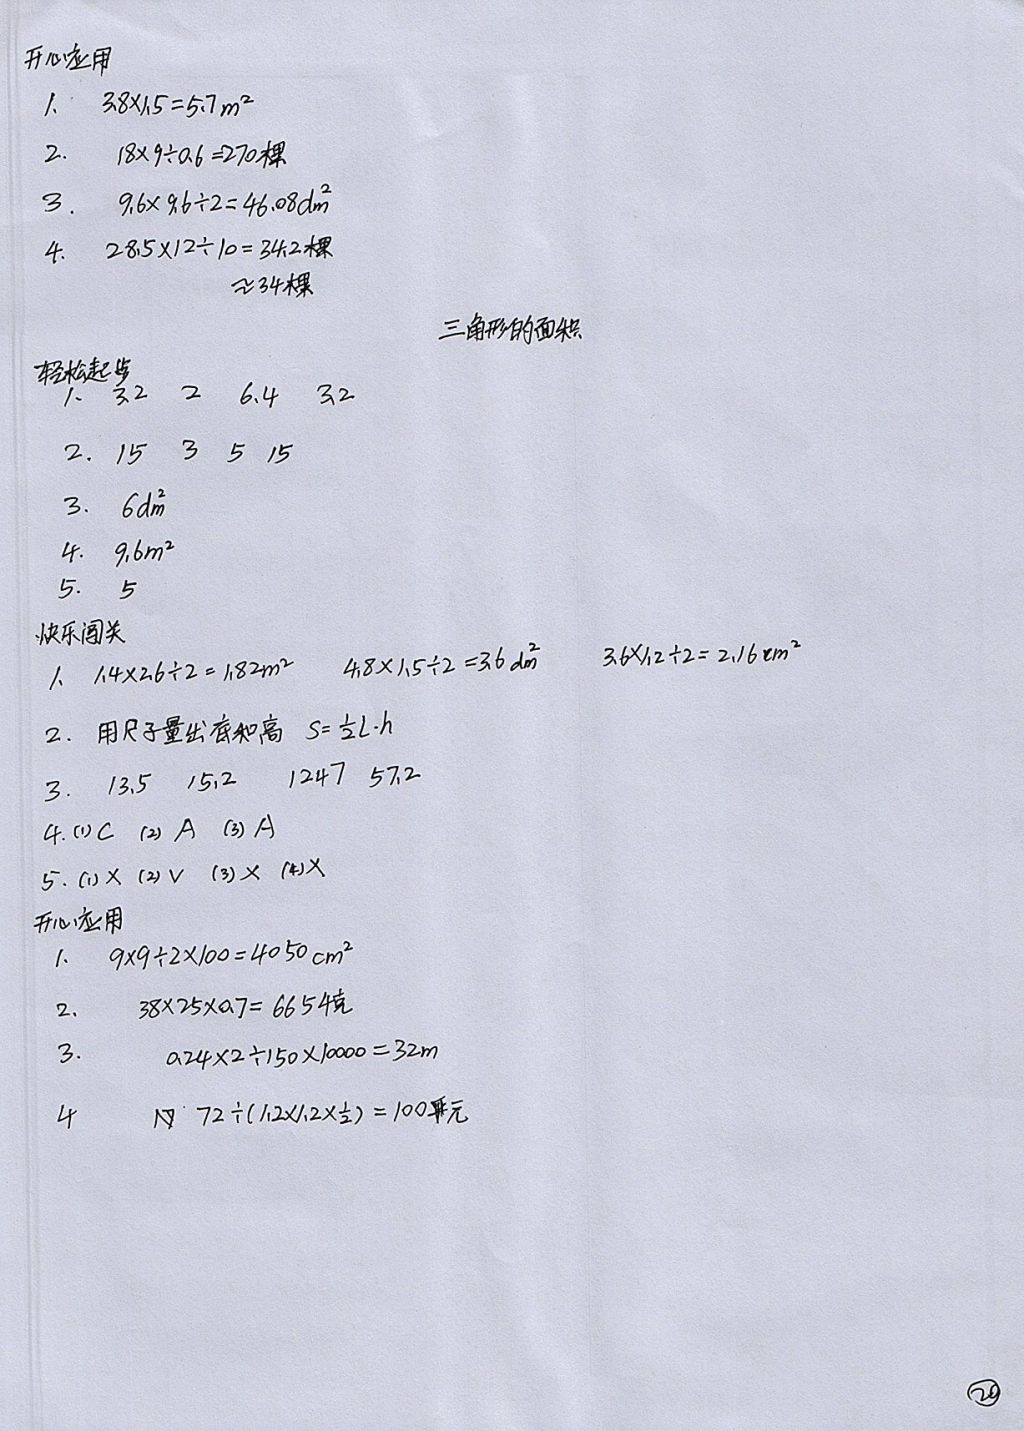 开心应用
1. 3.8×1.5=5.7m²
2. 18×9÷0.6=270棵
3. 9.6×9.6÷2=46.08dm²
4. 28.5×12÷10=34.2棵
≈34棵
三角形的面积
轻松起步
1. 3.2 2 6.4 3.2
2. 15 3 5 15
3. 6dm²
4. 9.6m²
5. 5
快乐闯关
1. 1.4×2.6÷2=1.82m² 4.8×1.5÷2=3.6dm² 3.6×1.2÷2=2.16cm²
2. 用尺子量出底和高 S=½L·h
3. 13.5 15.2 1247 57.2
4. (1) C (2) A (3) A
5. (1) × (2) √ (3) × (4) ×
开心应用
1. 9×9÷2×100=4050cm²
2. 38×25×0.7=665千克
3. 0.24×2÷150×10000=32m
4 72÷(1.2×1.2×½)=100元
20